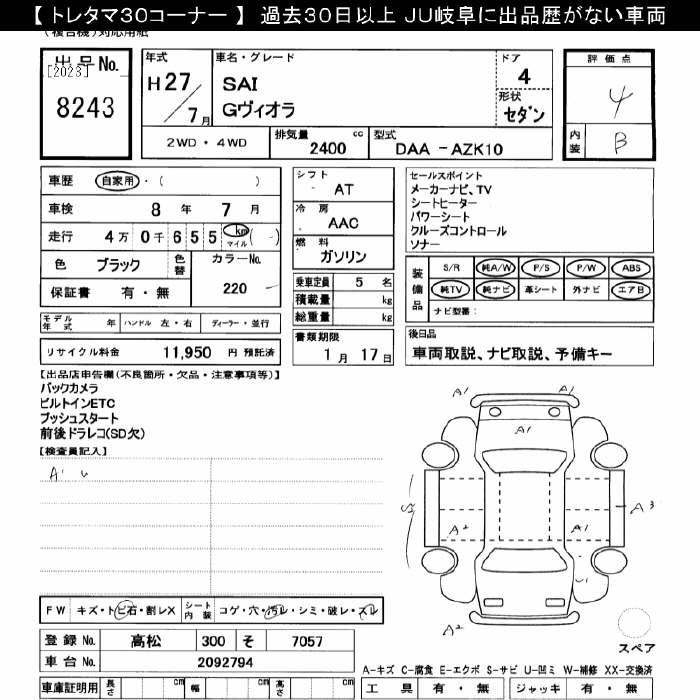 【 トレタマ30コーナー 】 過去30日以上 JU岐阜に出品歴がない車両
(複合機)対応用紙
出品No.
[2023]
8243
年式
H27/7月
車名・グレード
SAI
Gヴィオラ
ドア
4
形状
セダン
評価点
4
内装
B
2WD・4WD
排気量 2400 cc
型式 DAA -AZK10
車歴 自家用・( )
車検 8 年 7 月
走行 4万 0千 6 5 5 km マイル (-)
色 ブラック 色替 カラーNo. 220
保証書 有・無
シフト AT
冷房 AAC
燃料 ガソリン
乗車定員 5 名
積載量 kg
総重量 kg
セールスポイント
メーカーナビ、TV
シートヒーター
パワーシート
クルーズコントロール
ソナー
装備品
S/R 純A/W P/S P/W ABS
純TV 純ナビ 革シート 外ナビ エアB
ナビ型番:
モデル年式 年 ハンドル 左・右 ディーラー・並行
リサイクル料金 11,950 円 預託済
書類期限
1 月 17 日
後日品
車両取説、ナビ取説、予備キー
【出品店申告欄(不良箇所・欠品・注意事項等)】
バックカメラ
ビルトインETC
プッシュスタート
前後ドラレコ(SD欠)
【検査員記入】
A1 U
A1 A1
A1
S A3
A2 A1
A2
FW キズ・トビ石・割レX シート内装 コゲ・穴・汚レ・シミ・破レ・スレ
登録No. 高松 300 そ 7057
車台No. 2092794
車庫証明用 長さ cm 幅 cm 高さ cm
スペア
A-キズ C-腐食 E-エクボ S-サビ U-凹ミ W-補修 XX-交換済
工具 有・無 ジャッキ 有・無